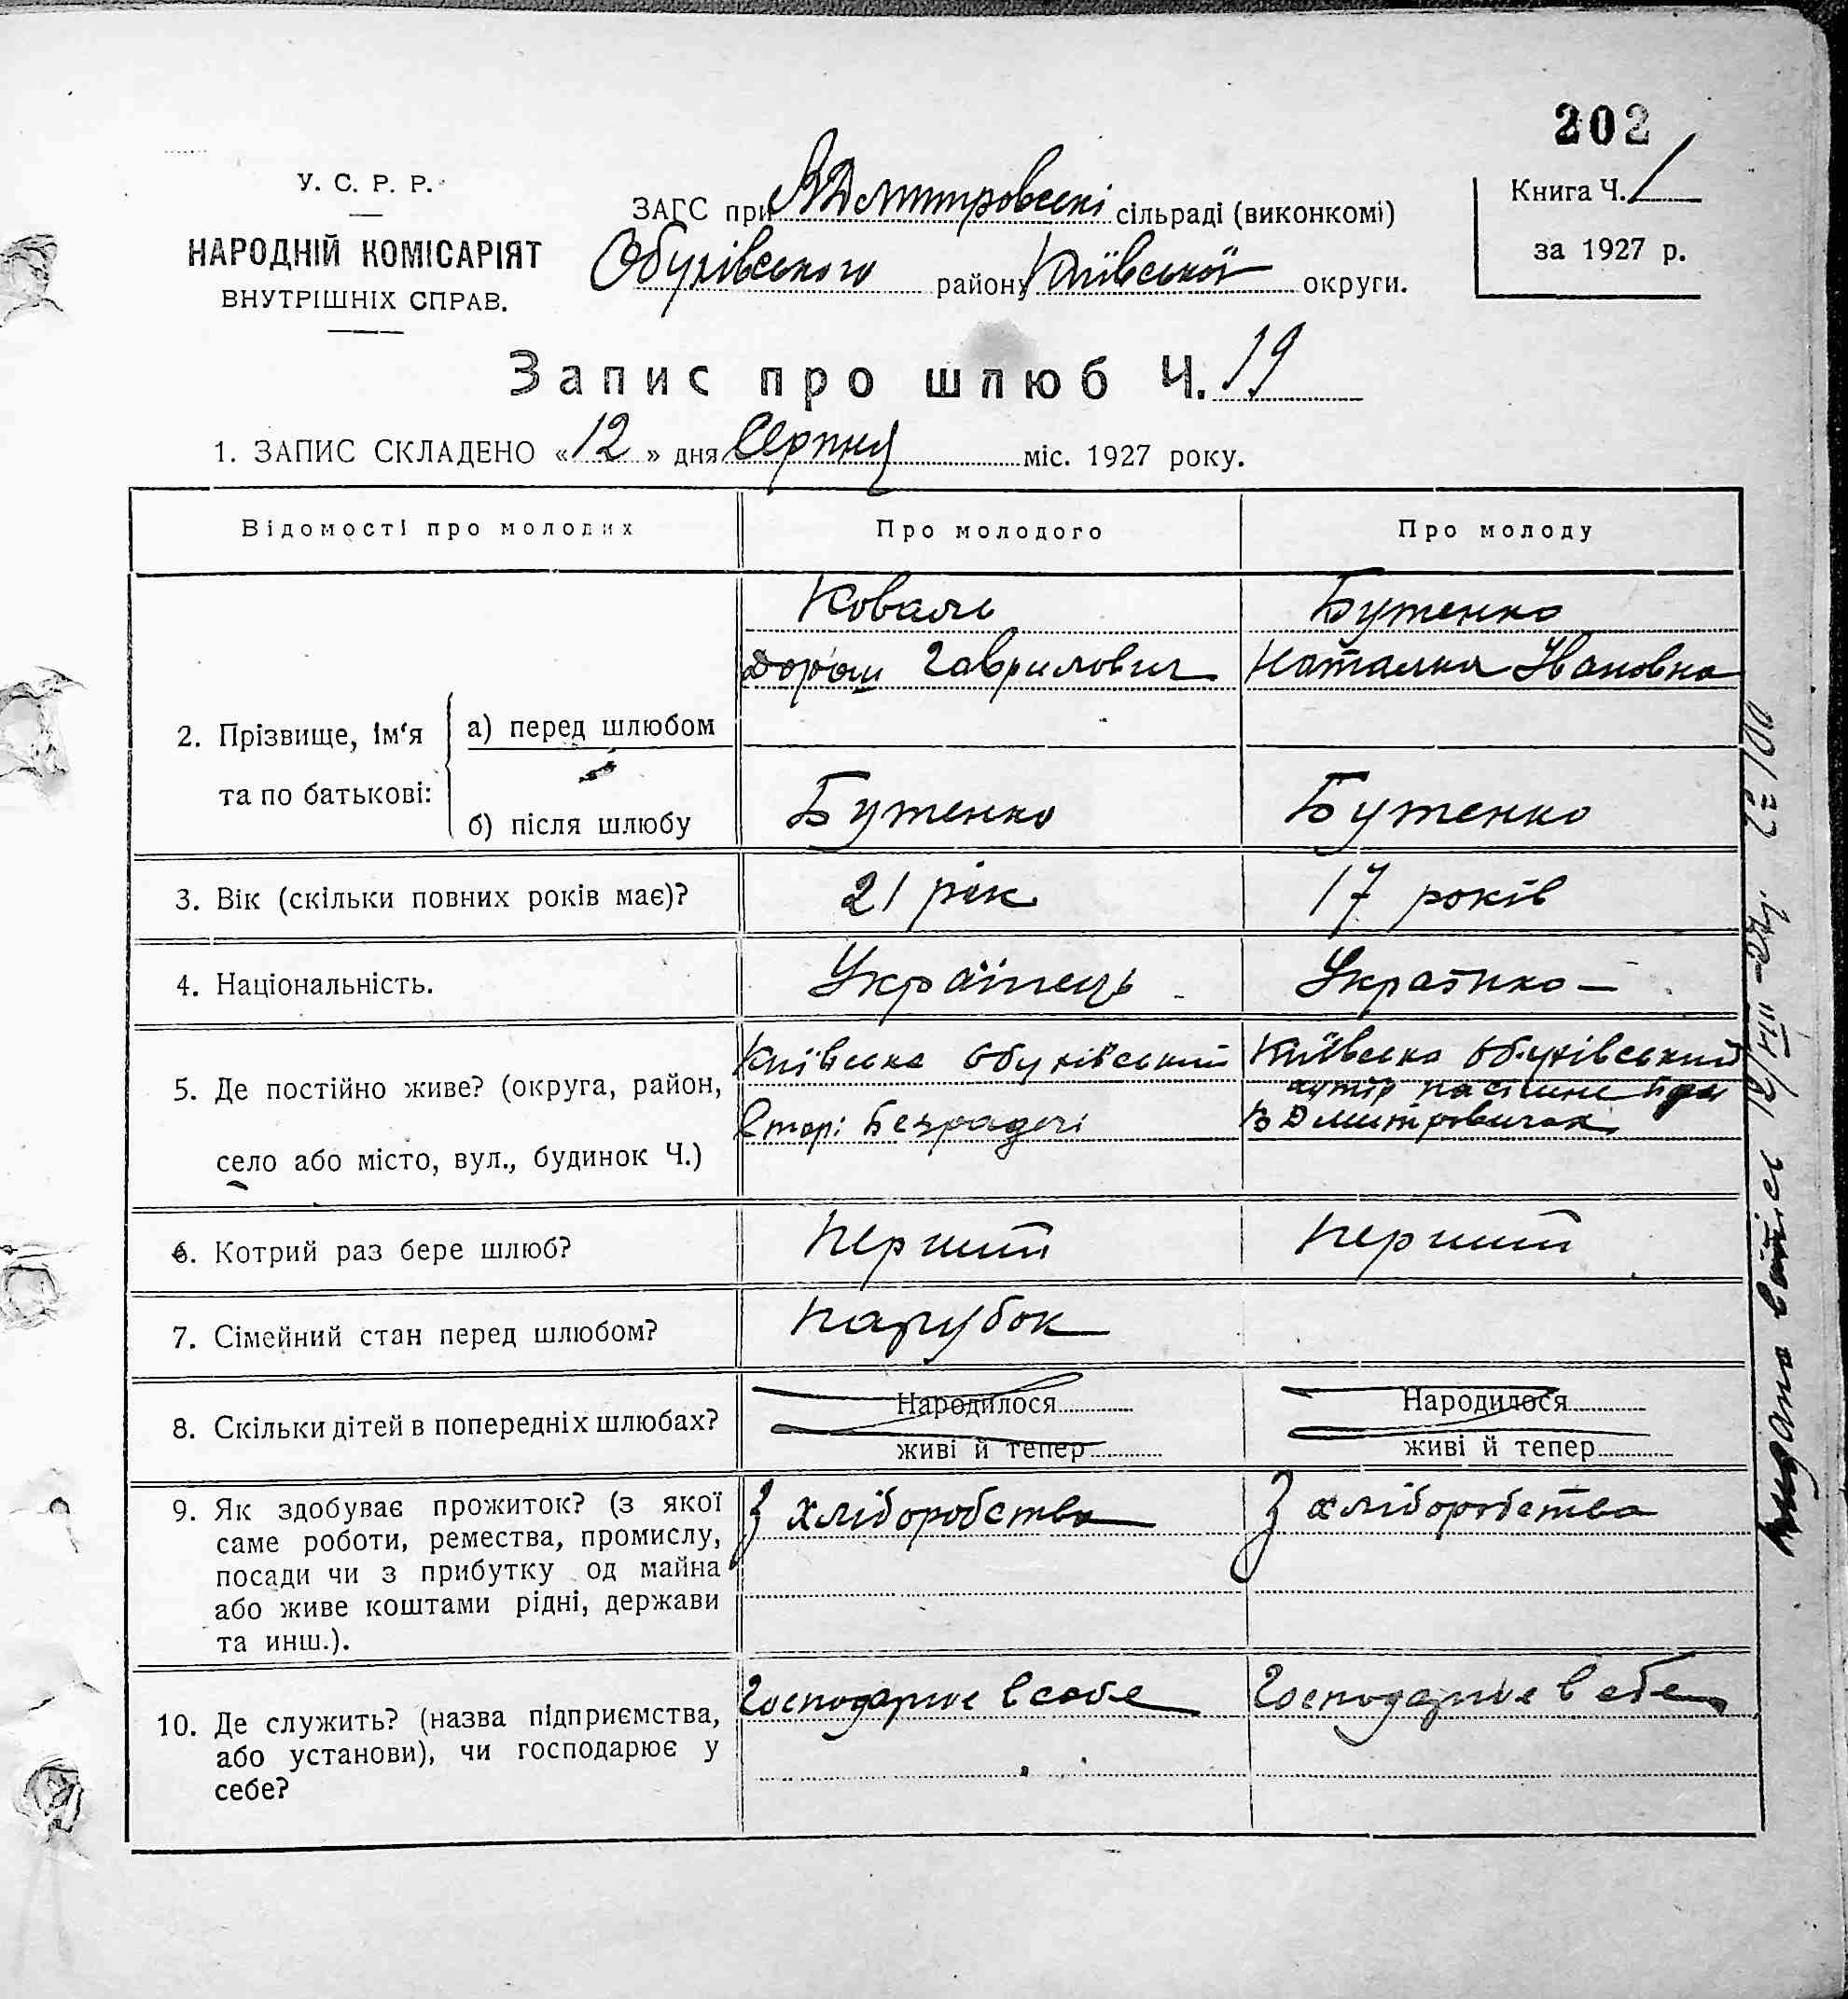 202
У. С. Р. Р.
НАРОДНІЙ КОМІСАРІЯТ
ВНУТРІШНІХ СПРАВ.
ЗАГС при ВДмитровскі сільраді (виконкомі)
Обухівського району Київської округи.
Книга Ч. 1
за 1927 р.
Запис про шлюб Ч. 19
1. ЗАПИС СКЛАДЕНО «12» дня Серпня міс. 1927 року.
Відомості про молодих Про молодого Про молоду
Коваль Бутенко
Дорош Гаврилович Наталка Івановна
2. Прізвище, ім'я та по батькові:
а) перед шлюбом
б) після шлюбу Бутенко Бутенко
3. Вік (скільки повних років має)? 21 рік 17 років
4. Національність. Українець Українка
5. Де постійно живе? (округа, район, село або місто, вул., будинок Ч.)
Київська Обухівський Київська Обухівський
Безрадечі хутір
ВДмитровичах
6. Котрий раз бере шлюб? Перший Перший
7. Сімейний стан перед шлюбом? Парубок
8. Скільки дітей в попередніх шлюбах? Народилося Народилося
живі й тепер живі й тепер
9. Як здобуває прожиток? (з якої З хліборобства З хліборобства
саме роботи, ремества, промислу,
посади чи з прибутку од майна
або живе коштами рідні, держави
та инш.).
10. Де служить? (назва підприємства, Господарює в себе Господарює в себе
або установи), чи господарює у
себе?